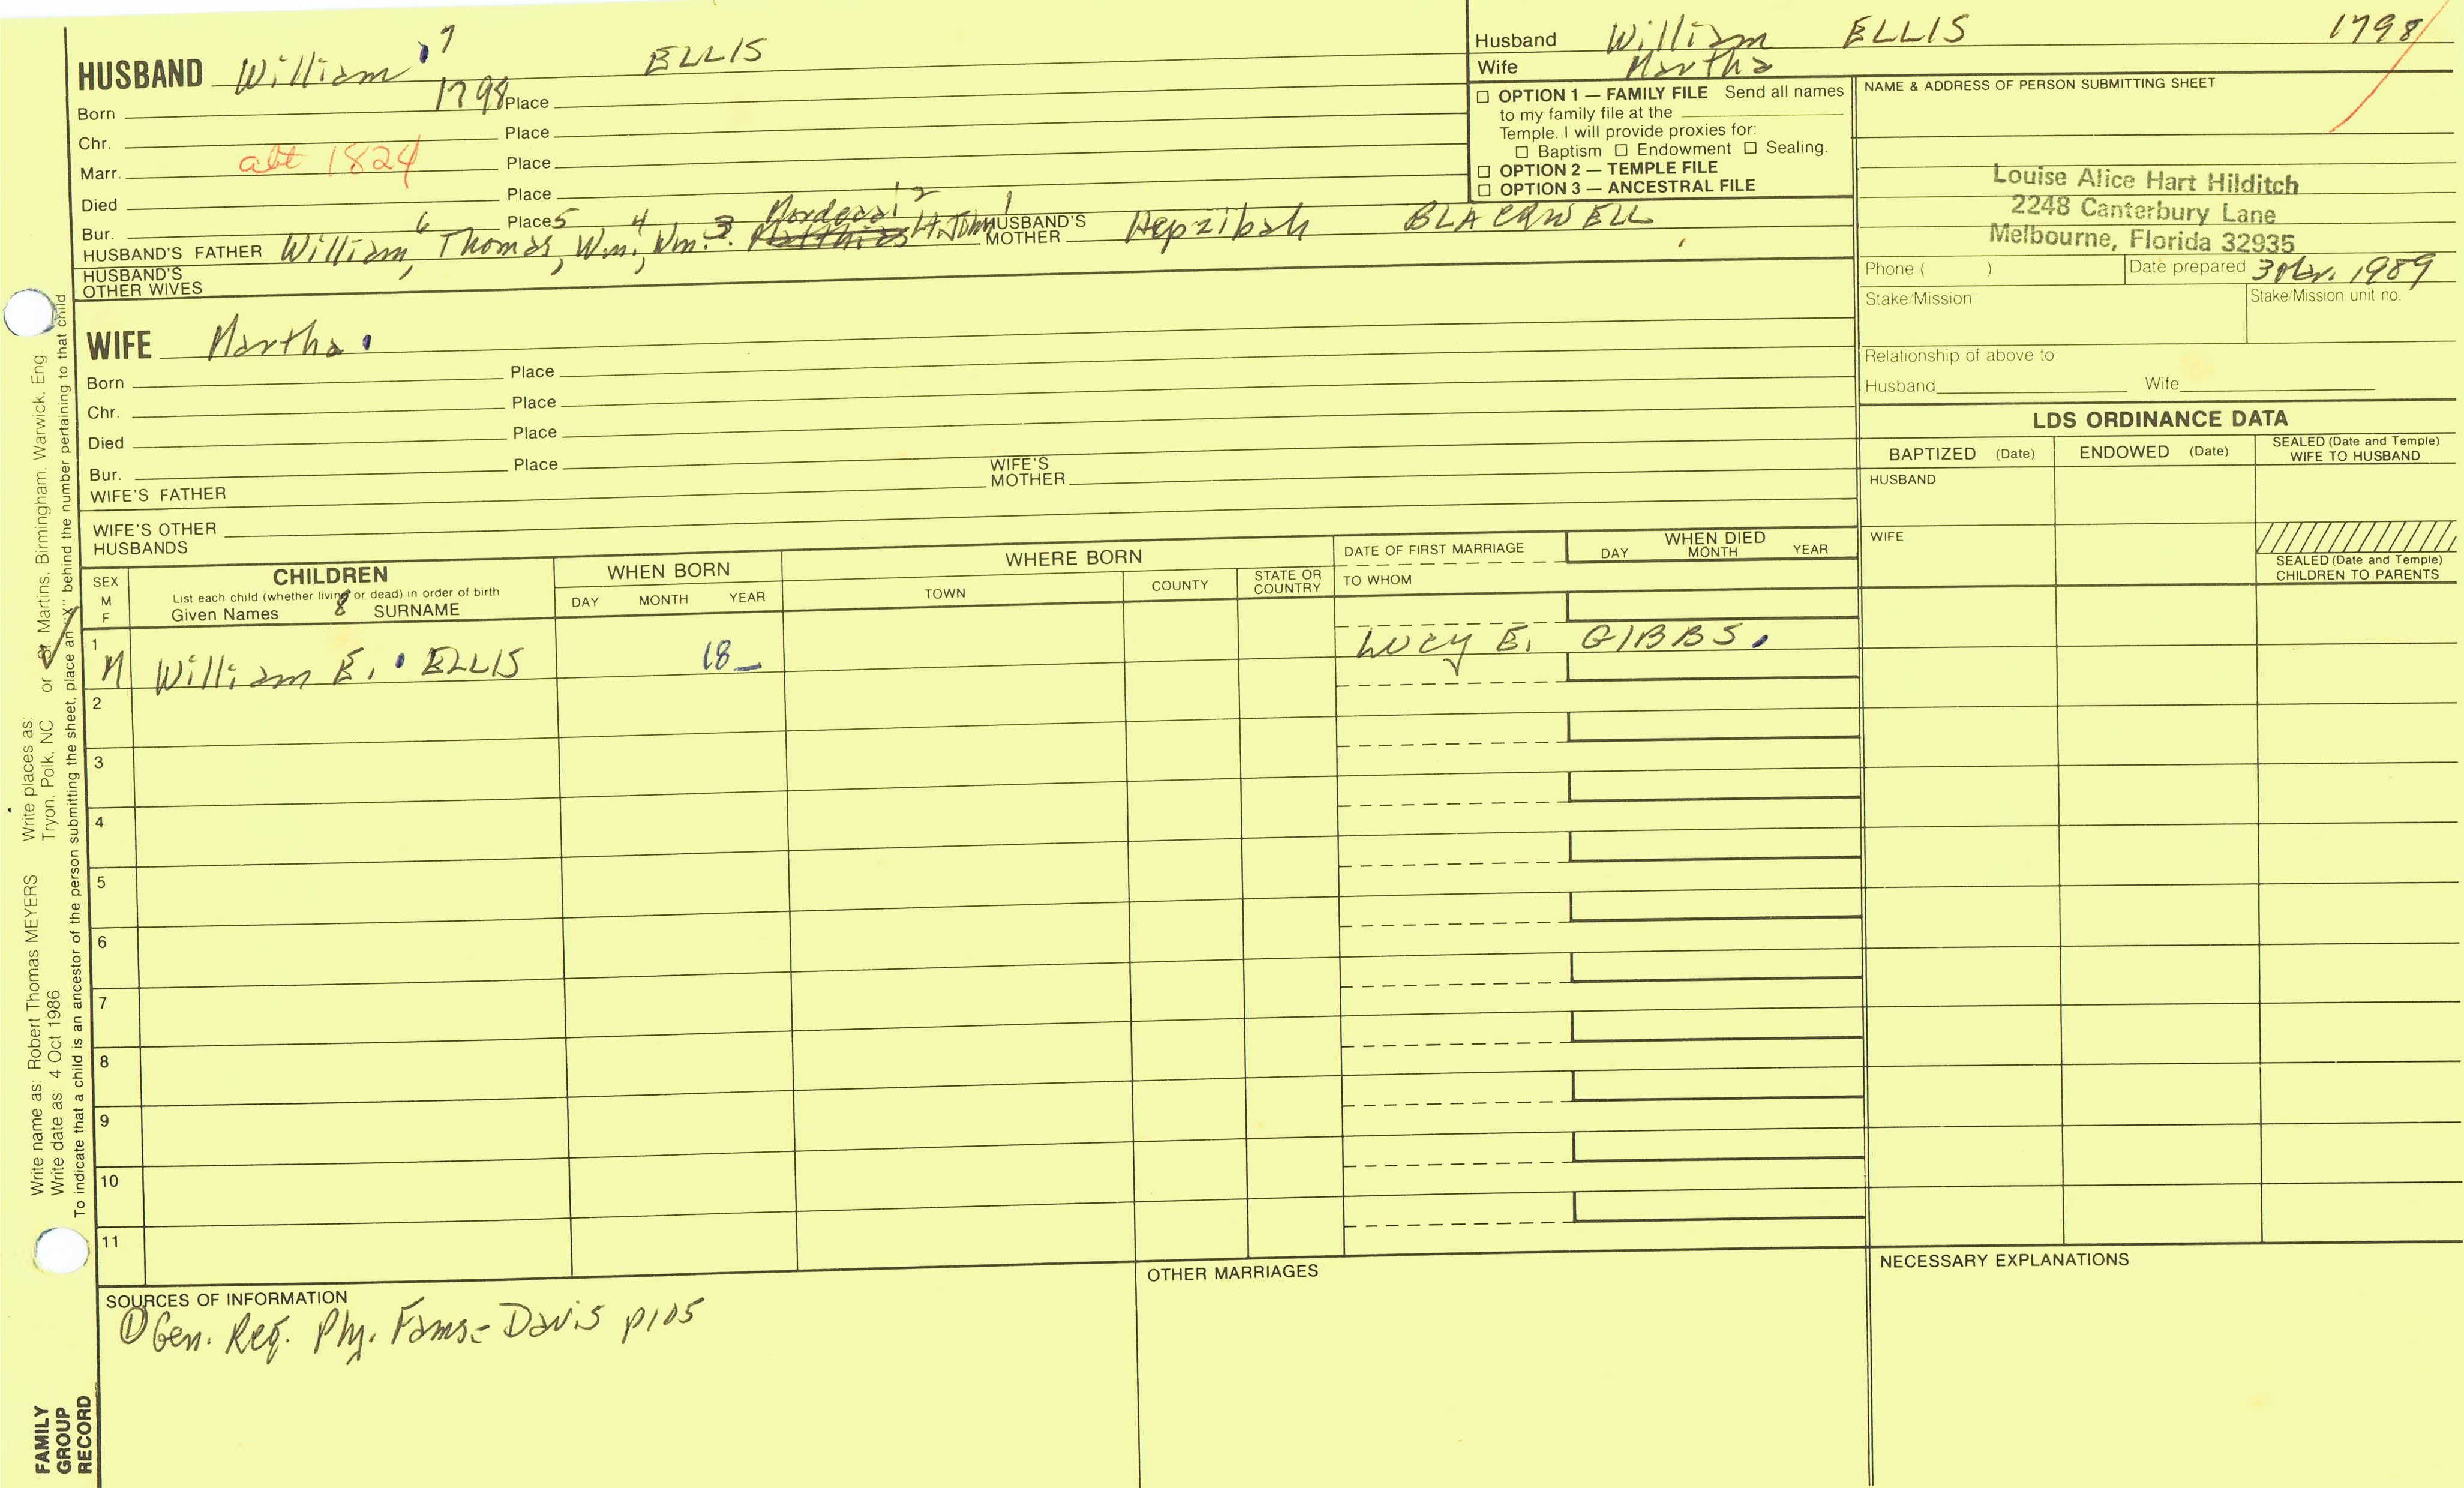 HUSBAND William 7 ELLIS
Born 1798 Place
Chr. Place
Marr. abt 1824 Place
Died Place
Bur. Place
HUSBAND'S FATHER William 6, Thomas 5, Wm. 4, Wm. 3 Mordecai 2 Lt. John 1 HUSBAND'S MOTHER Hepzibah
HUSBAND'S OTHER WIVES
Husband William ELLIS 1798
Wife Martha
☐ OPTION 1 — FAMILY FILE Send all names
to my family file at the
Temple. I will provide proxies for:
☐ Baptism ☐ Endowment ☐ Sealing.
☐ OPTION 2 — TEMPLE FILE
☐ OPTION 3 — ANCESTRAL FILE
NAME & ADDRESS OF PERSON SUBMITTING SHEET
Louise Alice Hart Hilditch
2248 Canterbury Lane
Melbourne, Florida 32935
Phone ( ) Date prepared 3 Mar. 1989
Stake/Mission Stake/Mission unit no.
Relationship of above to
Husband Wife
WIFE Martha
Born Place
Chr. Place
Died Place
Bur. Place
WIFE'S FATHER WIFE'S MOTHER
WIFE'S OTHER HUSBANDS
LDS ORDINANCE DATA
BAPTIZED (Date) ENDOWED (Date) SEALED (Date and Temple) WIFE TO HUSBAND
HUSBAND
WIFE
SEALED (Date and Temple)
CHILDREN TO PARENTS
SEX M F
CHILDREN
List each child (whether living or dead) in order of birth
Given Names 8 SURNAME
WHEN BORN
DAY MONTH YEAR
WHERE BORN
TOWN COUNTY STATE OR COUNTRY
DATE OF FIRST MARRIAGE
TO WHOM
WHEN DIED
DAY MONTH YEAR
1 M William E. ELLIS 18_ Lucy E. GIBBS.
2
3
4
5
6
7
8
9
10
11
SOURCES OF INFORMATION
① Gen. Reg. Ply. Fams - Davis p105
OTHER MARRIAGES
NECESSARY EXPLANATIONS
Write name as: Robert Thomas MEYERS Write places as:
Write date as: 4 Oct 1986 Tryon, Polk, NC or St. Martins, Birmingham, Warwick, Eng
To indicate that a child is an ancestor of the person submitting the sheet, place an "X" behind the number pertaining to that child.
FAMILY
GROUP
RECORD